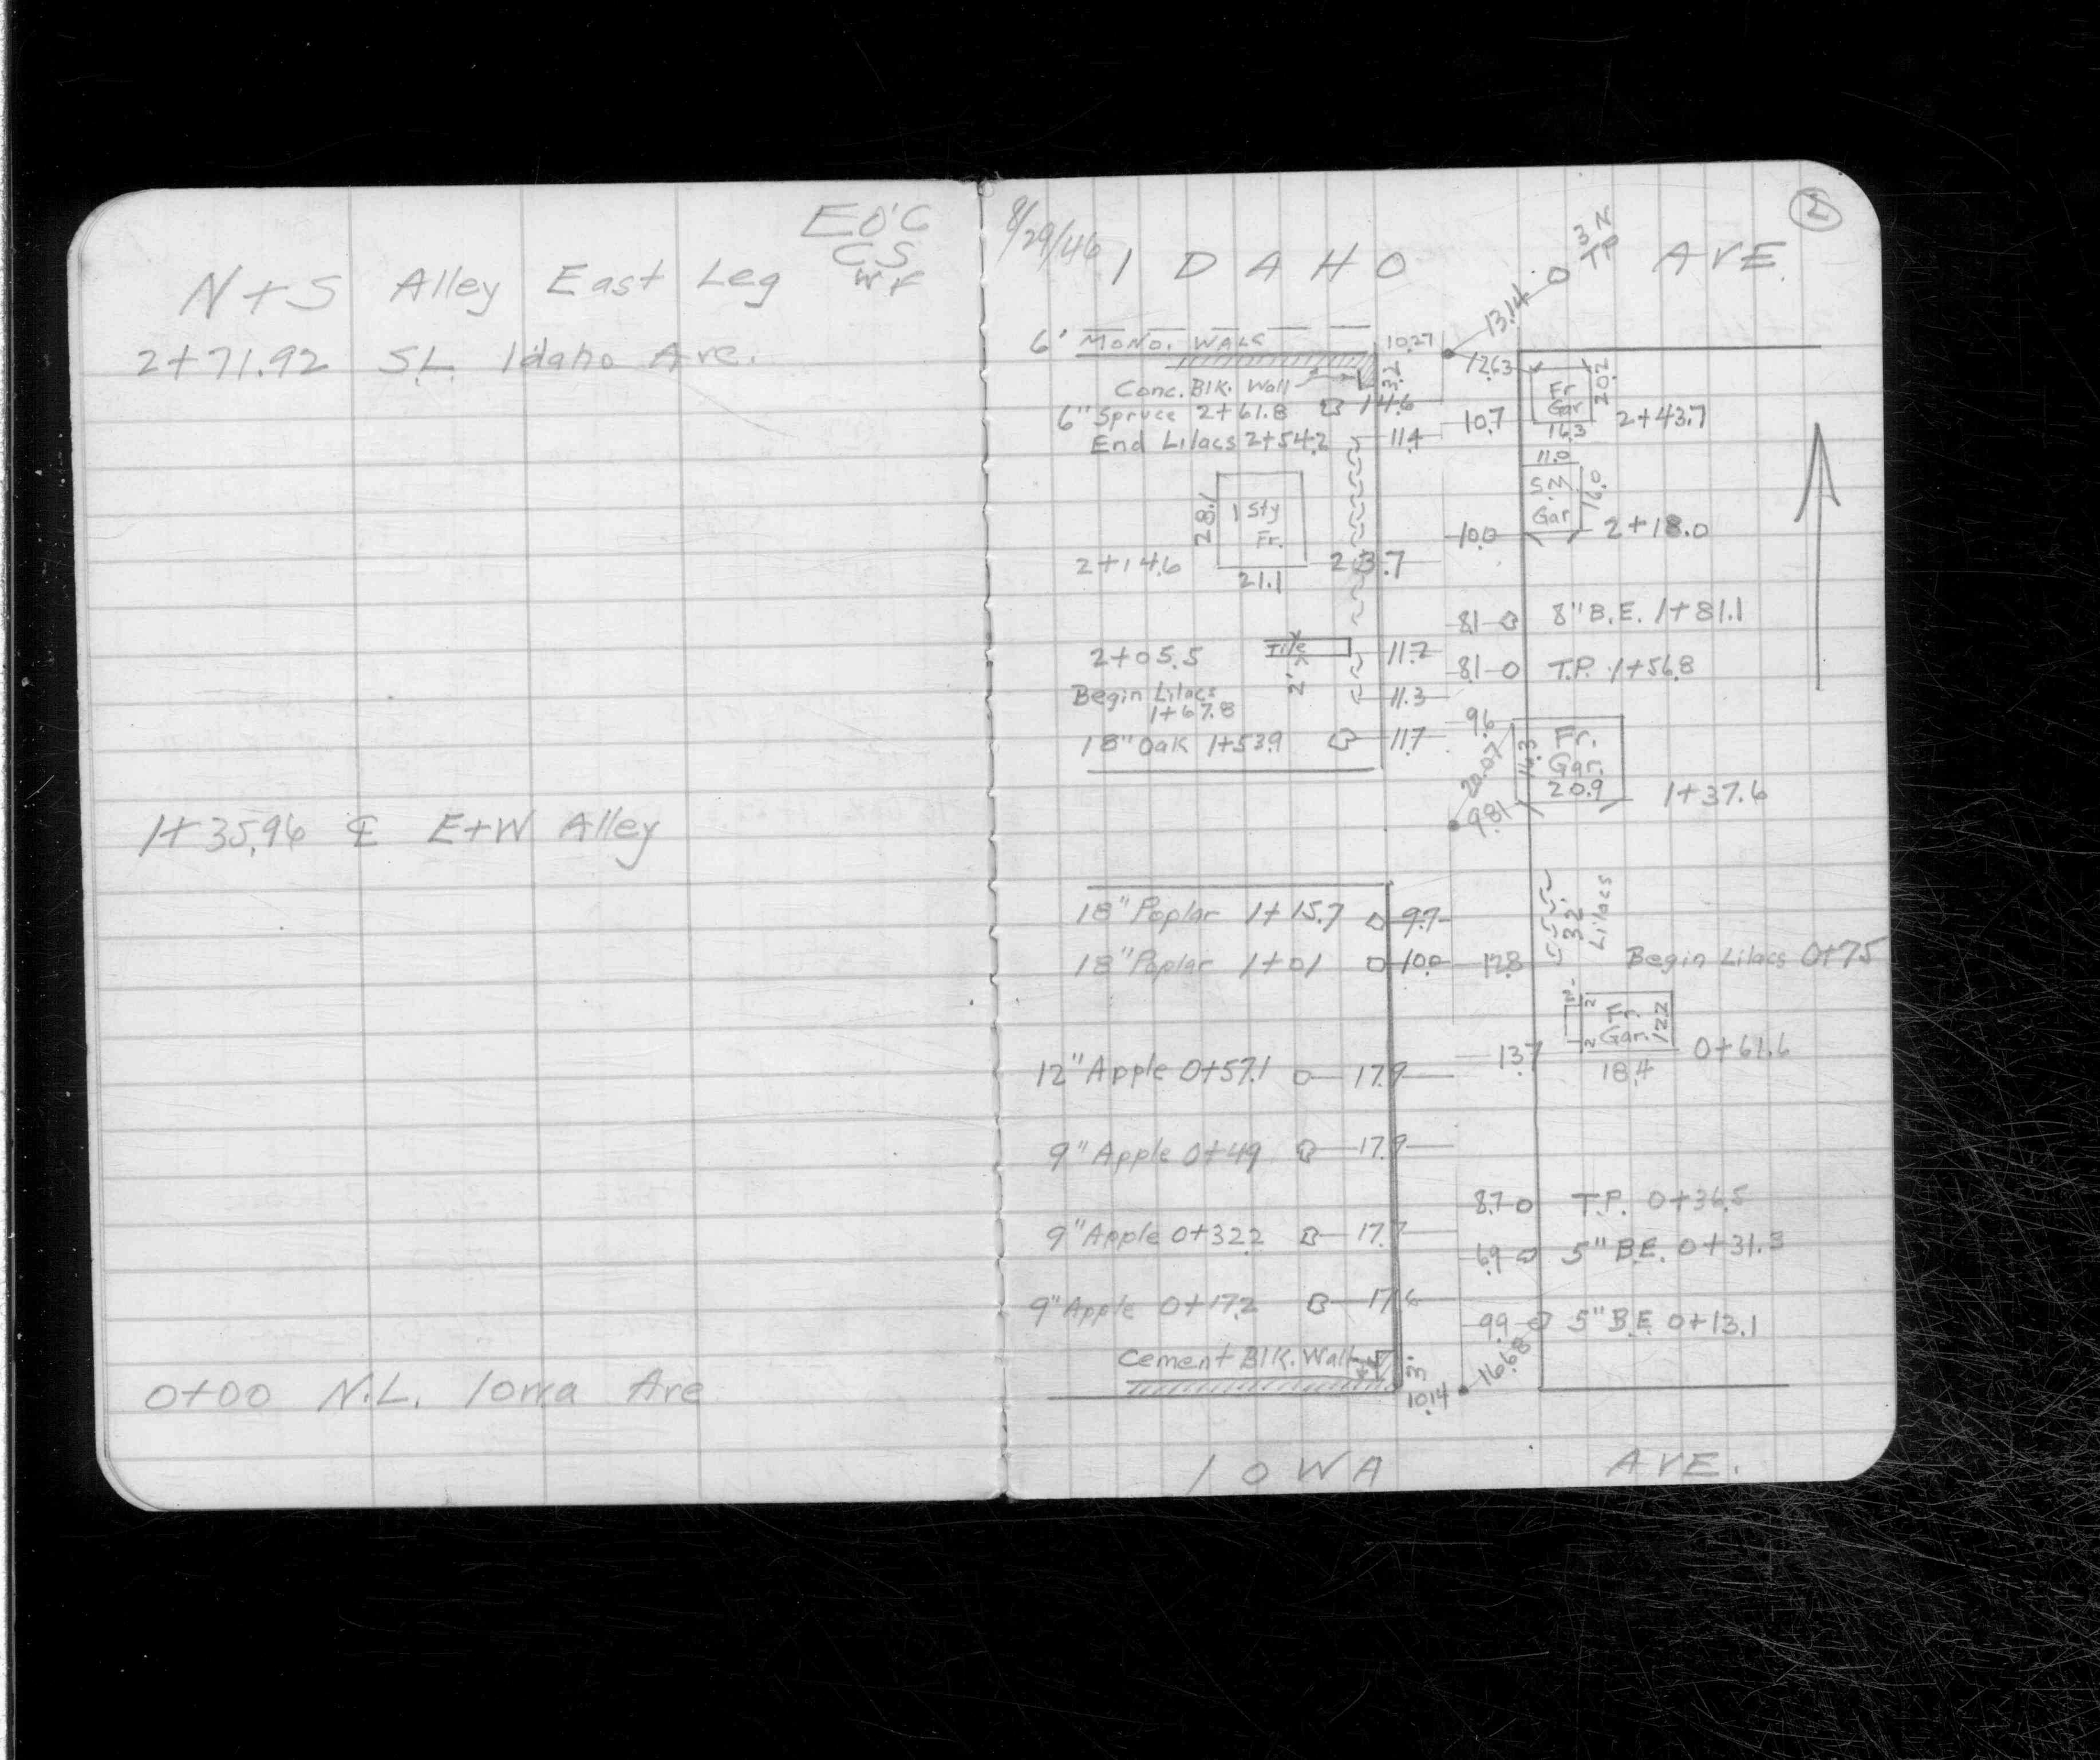 EO'C
CS
WF
N+S Alley East Leg
2+71.92 S.L. Idaho Ave.
1+35.96 ℄ E+W Alley
0+00 N.L. Iowa Ave
8/29/46
2
IDAHO AVE.
3 N
TP
13.14
6' MONO. WALK 10.27
12.63
Conc. Blk. Wall 3.2
Fr
Gar
20.2
16.3
6" Spruce 2+61.8 14.6
10.7 2+43.7
End Lilacs 2+54.2 11.4
11.0
S.N.
Gar
16.0
28.1 1 Sty
Fr.
10.0 2+18.0
2+14.6 23.7
21.1
8.1 8" B.E. 1+81.1
2+05.5 Tile 11.2
2'
8.1 T.P. 1+56.8
Begin Lilacs 11.3
1+67.8
9.6
18" Oak 1+53.9 11.7
20.07 16.3 Fr.
Gar.
20.9 1+37.6
9.81
18" Poplar 1+15.7 9.9
32
Lilacs
18" Poplar 1+01 10.0
12.8 Begin Lilacs 0+75
2 Gar. 12.2
2
13.7 0+61.6
18.4
12" Apple 0+57.1 17.9
9" Apple 0+49 17.9
8.7 T.P. 0+36.5
9" Apple 0+32.2 17.7
6.9 5" B.E. 0+31.3
9" Apple 0+17.2 17.6
9.9 5" B.E. 0+13.1
16.68
Cement Blk. Wall 3
10.14
IOWA AVE.